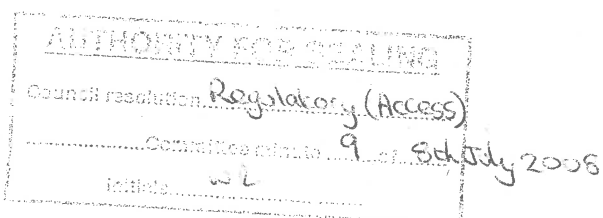 AUTHORITY FOR SEALING
Council resolution Regulatory (Access)
Committee minute 9 of 8th July 2008
Initials WL